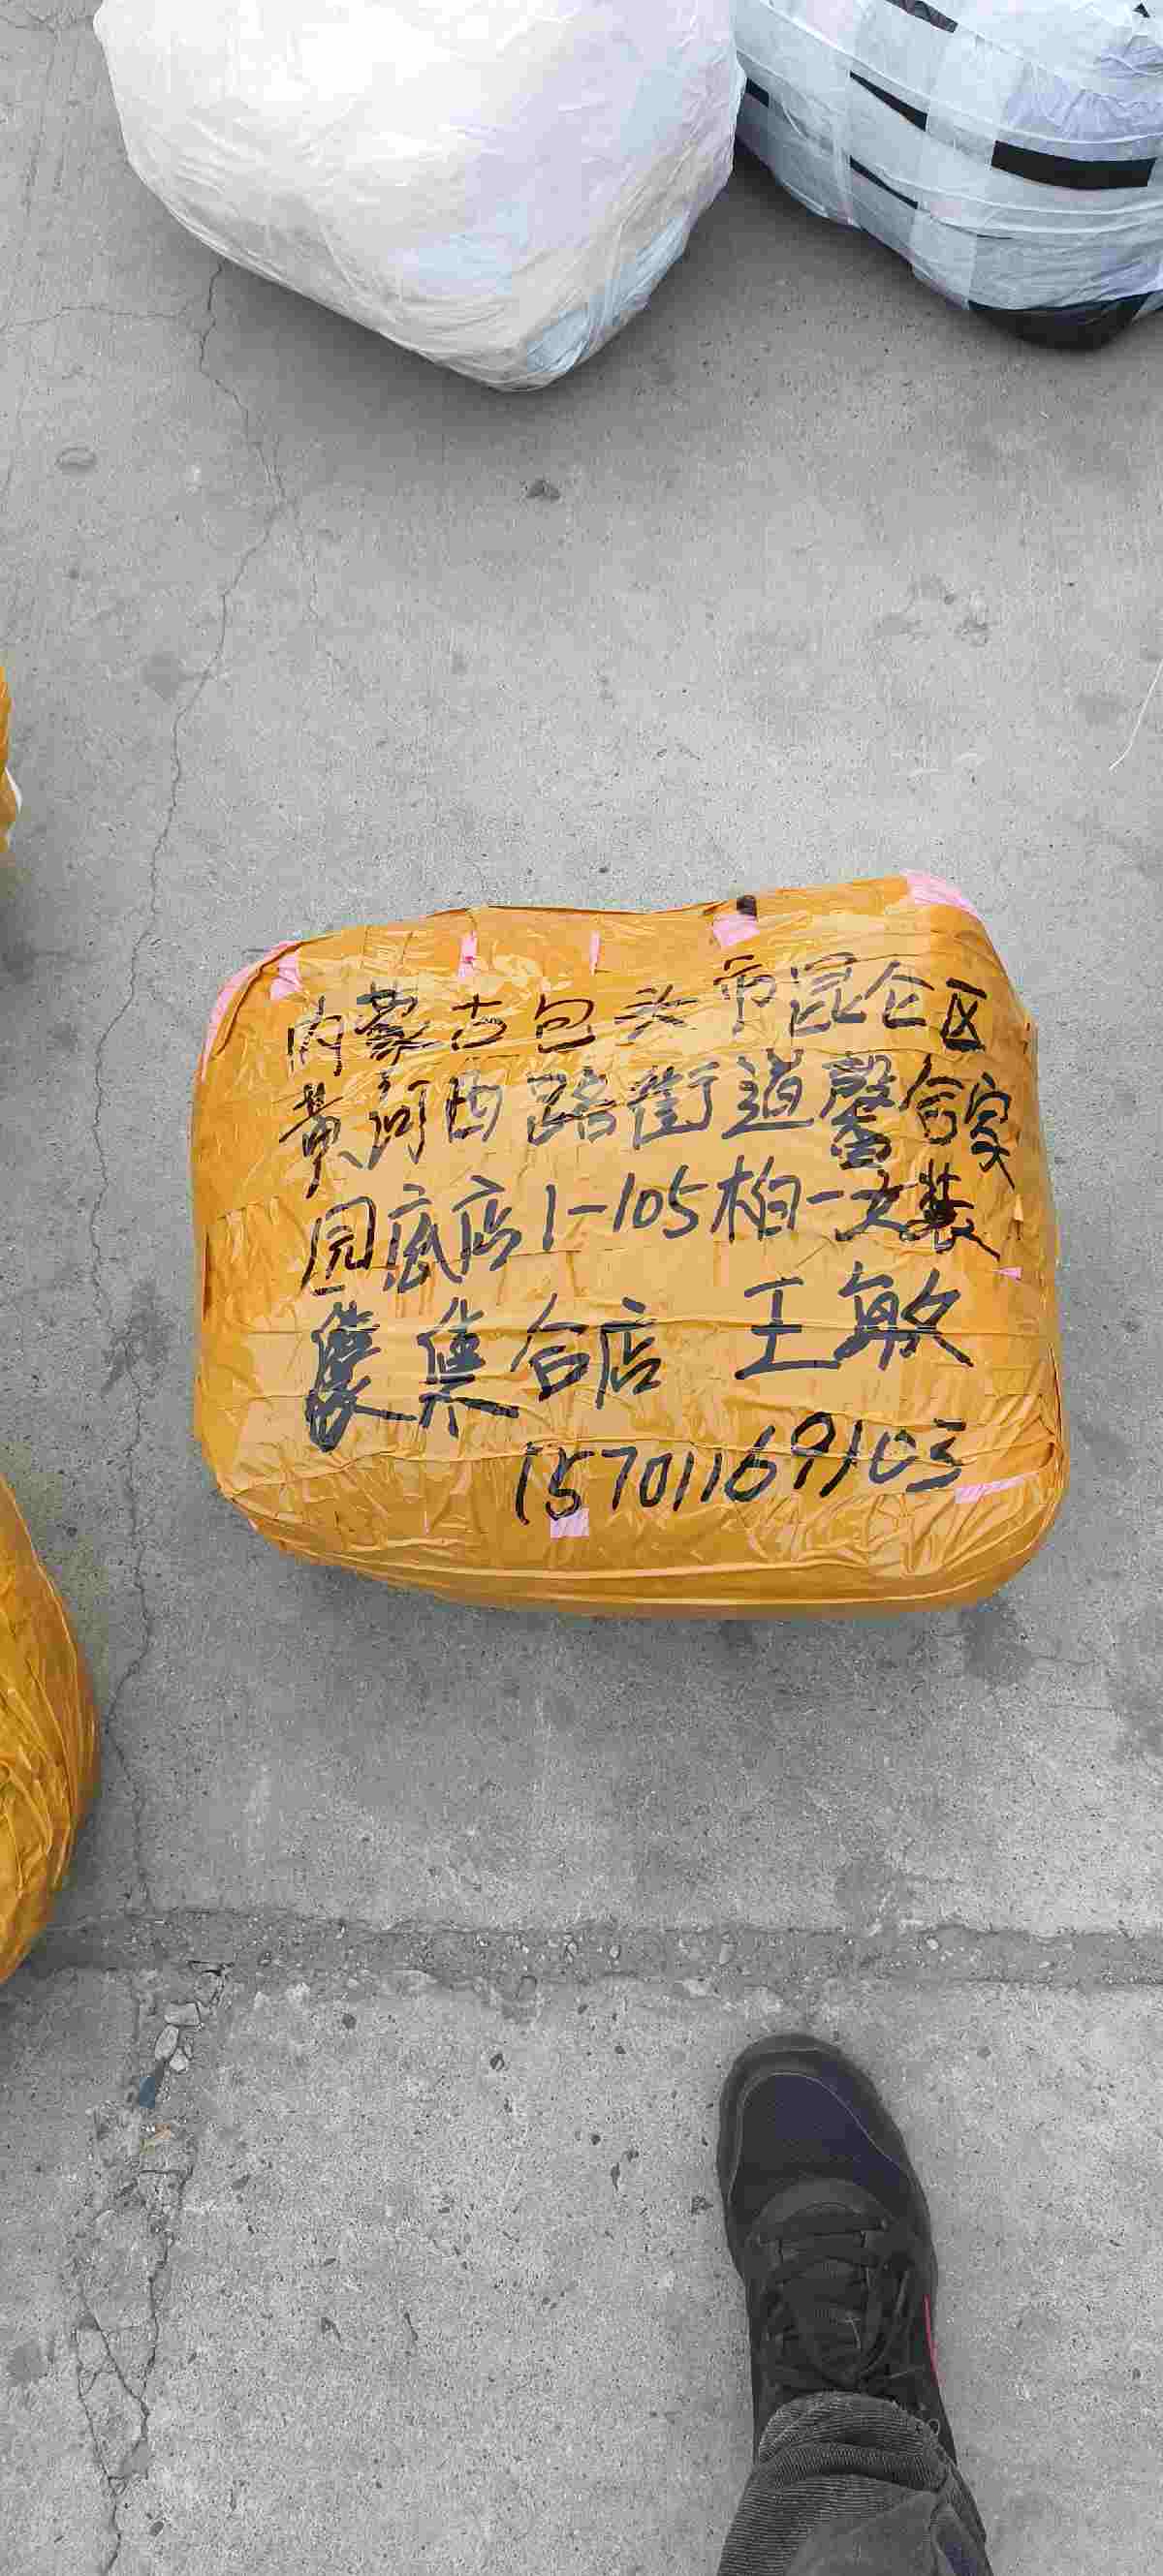 内蒙古包头市昆仑区
黄河西路街道馨合家
园底店1-105柏一女装
集合店 王敏
15701169103